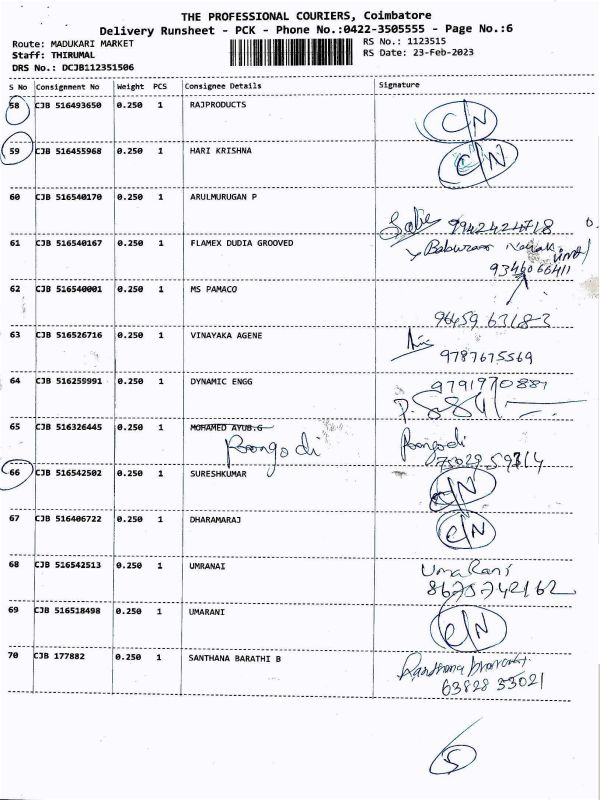 THE PROFESSIONAL COURIERS, Coimbatore
Delivery Runsheet - PCK - Phone No.:0422-3505555 - Page No.:6
Route: MADUKARI MARKET RS No.: 1123515
Staff: THIRUMAL RS Date: 23-Feb-2023
DRS No.: DCJB112351506
S No Consignment No Weight PCS Consignee Details Signature
58 CJB 516493650 0.250 1 RAJPRODUCTS C/N
59 CJB 516455968 0.250 1 HARI KRISHNA C/N
60 CJB 516540170 0.250 1 ARULMURUGAN P
9942424718
61 CJB 516540167 0.250 1 FLAMEX DUDIA GROOVED
9346066411
62 CJB 516540001 0.250 1 MS PAMACO
96459 63183
63 CJB 516526716 0.250 1 VINAYAKA AGENE
9787675569
64 CJB 516259991 0.250 1 DYNAMIC ENGG 9791970887
65 CJB 516326445 0.250 1 MOHAMED AYUB.G
Poongodi Poongodi
66 CJB 516542502 0.250 1 SURESHKUMAR C/N
67 CJB 516406722 0.250 1 DHARAMARAJ C/N
68 CJB 516542513 0.250 1 UMRANAI Uma Rani
8675742162
69 CJB 516518498 0.250 1 UMARANI C/N
70 CJB 177882 0.250 1 SANTHANA BARATHI B
63828 33021
5